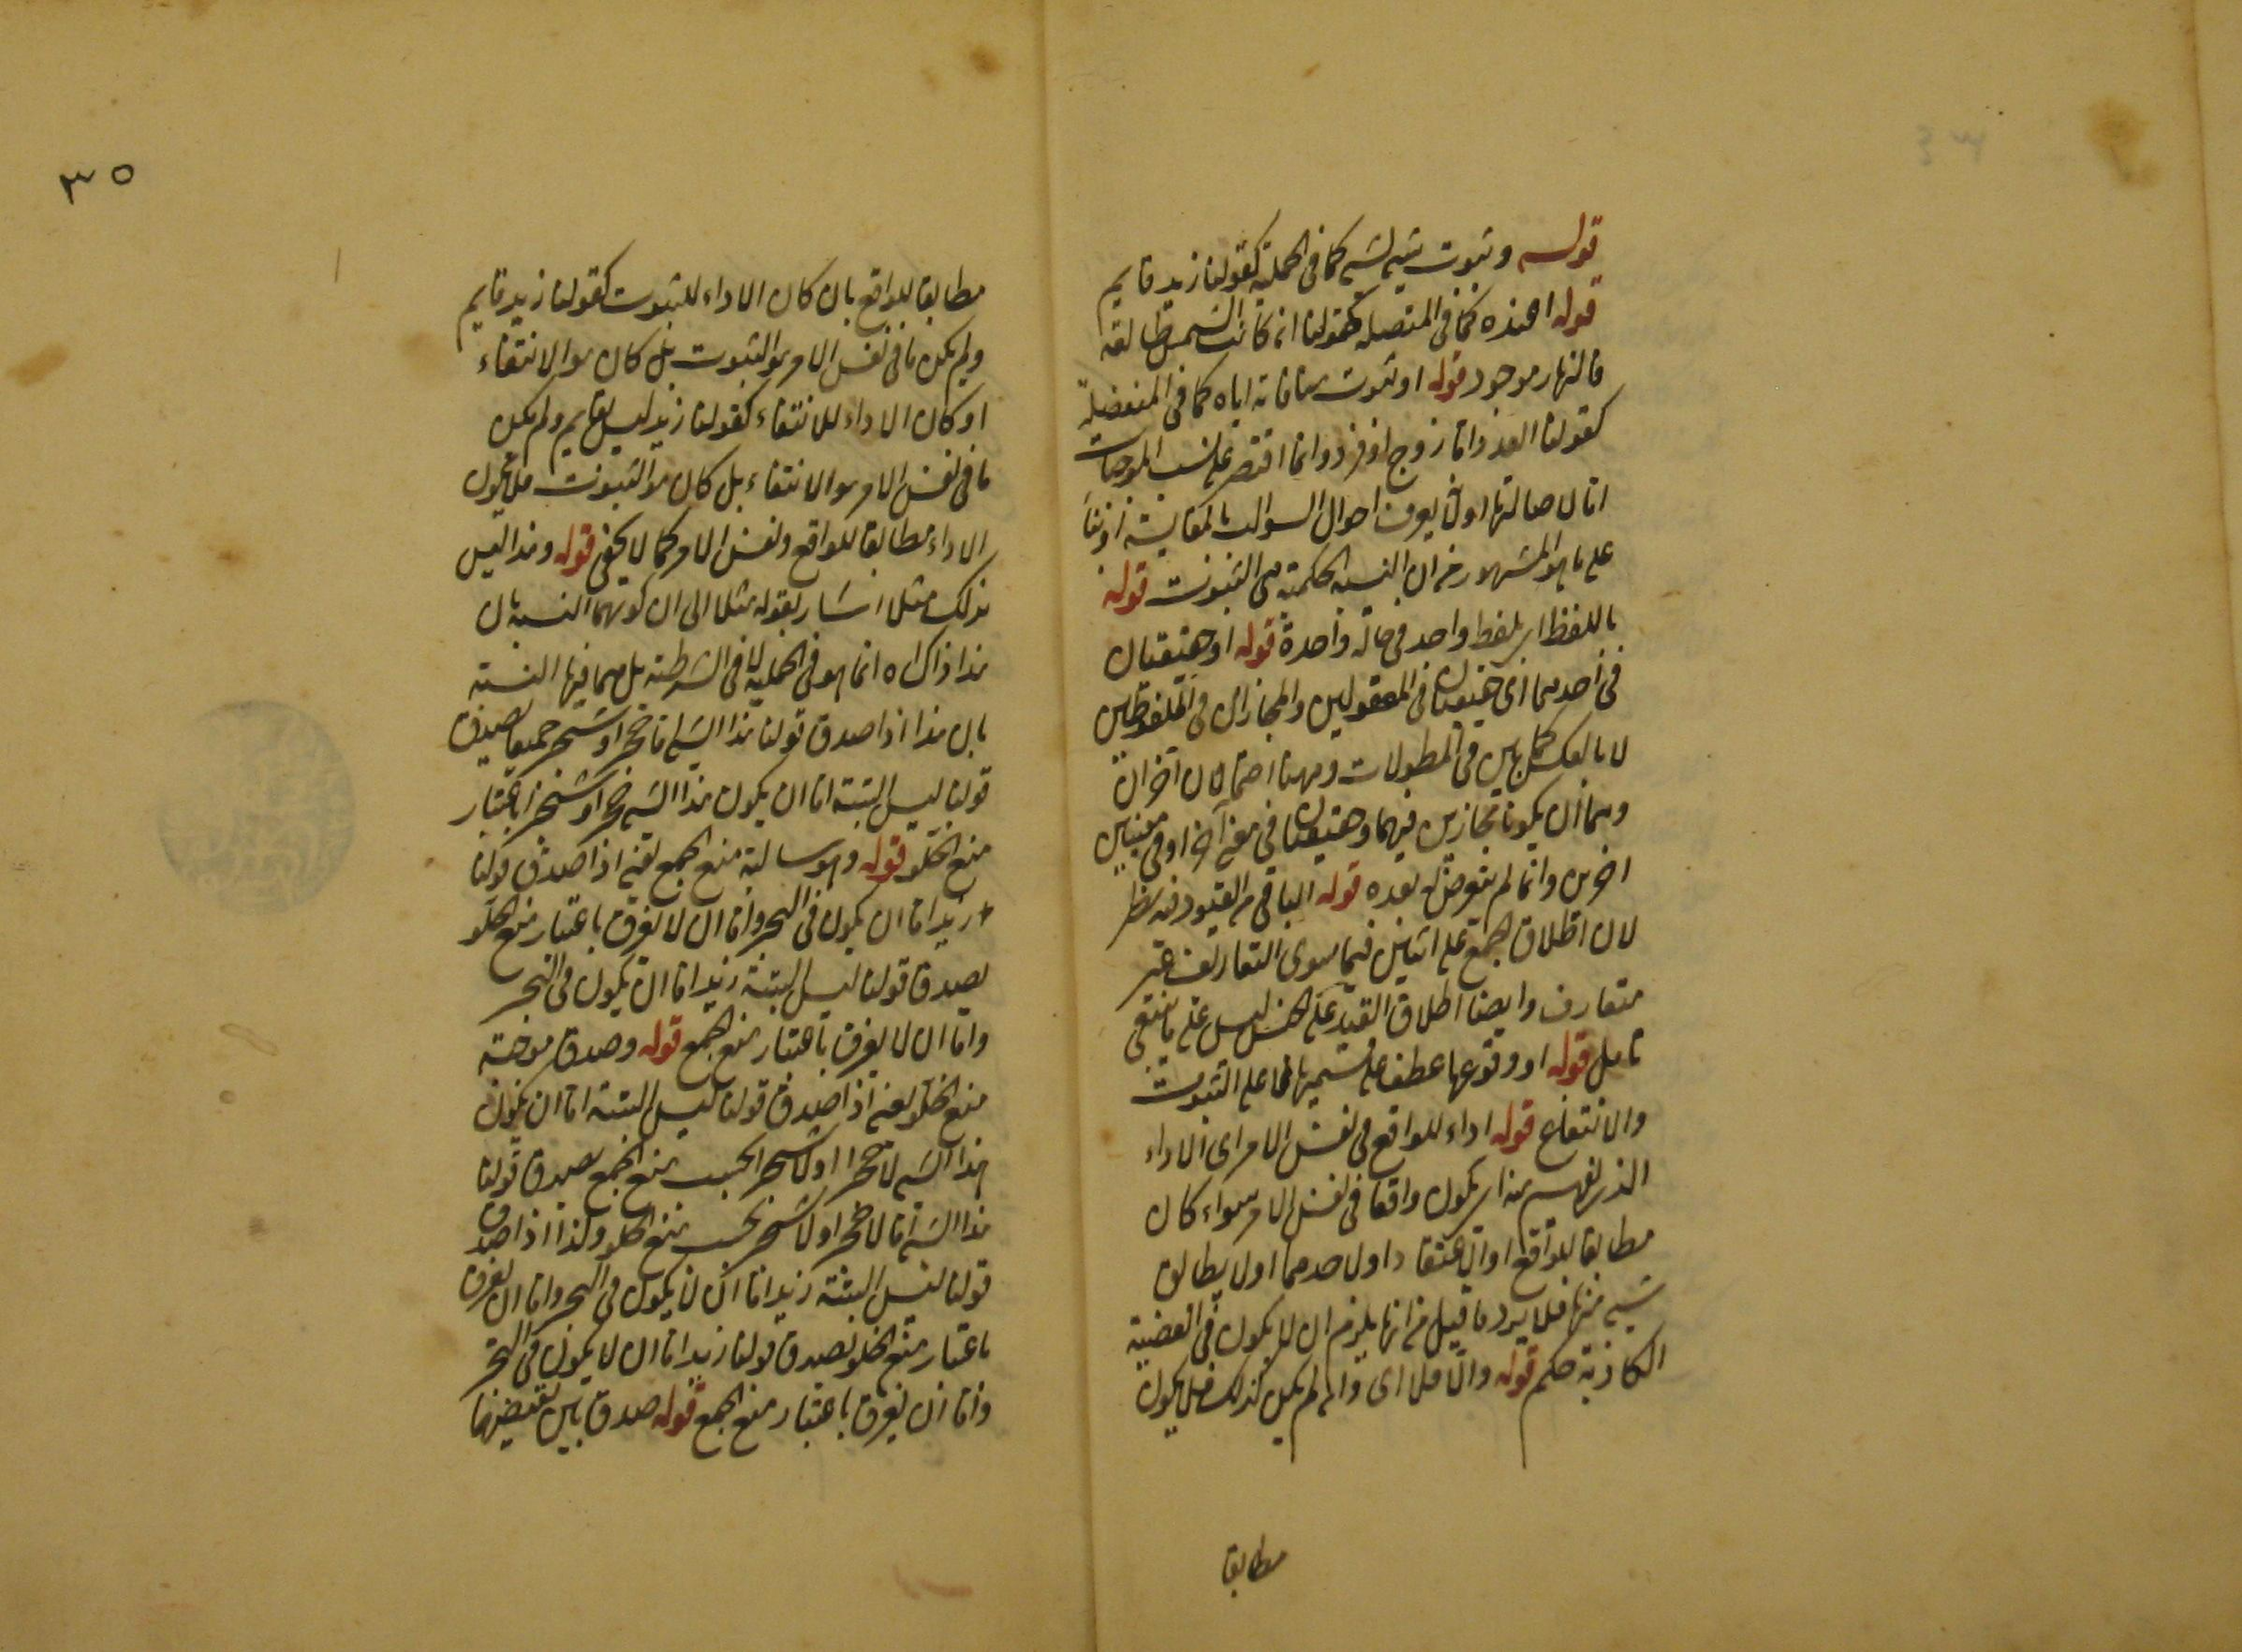 قوله وثبوت شيء لشيء كما في الحملية كقولنا زيد قايم
قوله اعنده كما في المتصله كقولنا ان كانت الشمس طالعه
فالنهار موجود قوله او ثبوت منافاته اياه كما في المنفصلة
كقولنا العدد اما زوج او فرد وانما اقتصر على نسب الموجبات
اما لاصالتها او لان يعرف احوال السوالب بالمقايسة او بناء
على ما هو المشهور من ان النسبة الحكمية هي الثبوت قوله
باللفظ اي بلفظ واحد في حالة واحدة قوله او حقيقتان
في احدهما اي حقيقتان في المعقولين والمجازان في الملفوظين
لا بالعكس كما بين في المطولات وههنا احتمالان اخران
وهما ان يكونا مجازين فيهما وحقيقتان في معنى آخر او في معنيين
اخرين وانما لم يتعرض لبعده قوله الباقي من القيود فيه نظر
لان اطلاق الجمع على اثنين فيما سوى التعاريف غير
متعارف وايضا اطلاق القيد على الجنس ليس على ما ينبغي
تامل قوله او وقوعها عطف على قسميها لا على الثبوت
والانتفاع قوله اداء للواقع في نفس الامر اي الاداء
الذي يفهم منه ان يكون واقعا في نفس الامر سواء كان
مطابقا للواقع او الاعتقاد او لاحدهما او لا يطابق
شيء منها فلا يرد ما قيل من انها يلزم ان لا يكون في القضية
الكاذبة حكم قوله والا فلا اي وان لم يكن كذلك فلا يكون
مطابقا
٣٥
مطابقا للواقع بان كان الاداء للثبوت كقولنا زيد قايم
ولم يكن ما في نفس الامر هو الثبوت بل كان هو الانتفاء
او كان الاداء للانتفاء كقولنا زيد ليس بقايم ولم يكن
ما في نفس الامر هو الانتفاء بل كان هو الثبوت فلا يكون
الاداء مطابقا للواقع ونفس الامر كما لا يخفى قوله وهذا ليس
بذلك مثلا اشار بقوله مثلا الى ان كونهما النسبة بان
هذا ذاك انما هو في الحملية لا في الشرطية بل هما فيها النسبة
بان هذا اذا صدق قولنا هذا الشيء اما حجر او شجر جميعا يصدق
قولنا ليس البتة اما ان يكون هذا الشيء حجر او شجر باعتبار
منع الخلو قوله وهو سالبة منع الجمع يعني اذا صدق قولنا
زيد اما ان يكون في البحر واما ان لا يغرق باعتبار منع الخلو
يصدق قولنا ليس البتة زيد اما ان يكون في البحر
واما ان لا يغرق باعتبار منع الجمع قوله وصدق موجبة
منع الخلو يعني اذا صدق قولنا ليس البتة اما ان يكون
هذا الشيء لا حجرا او لا شجرا بحسب منع الجمع يصدق قولنا
هذا الشيء اما لا حجر او لا شجر بحسب منع الخلو وكذا اذا صدق
قولنا ليس البتة زيد اما ان لا يكون في البحر واما ان يغرق
باعتبار منع الخلو يصدق قولنا زيد اما ان لا يكون في البحر
واما ان يغرق باعتبار منع الجمع قوله صدق بين نقيضيهما